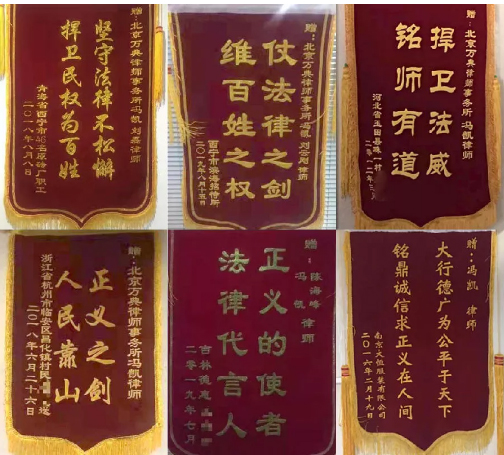 赠：北京万典律师事务所冯凯 刘磊律师
坚守法律不松懈
捍卫民权为百姓
青海省西宁市46名原砖厂职工
二〇一八年八月八日
赠：北京万典律师事务所冯凯 刘
律师
仗法律之剑
维百姓之权
西宁市滨海招待所
二〇一九年八月十五日
赠：北京万典律师事务所 冯凯律师
捍卫法威
铭师有道
河北省玉田县
一村
二〇一二年
赠：北京万典律师事务所冯凯律师
正义之剑
人民靠山
浙江省杭州市临安区昌化镇村民
送
二〇一八年六月二十六日
赠：陈海峰
冯凯 律师
正义的使者
法律代言人
吉林
二零一九年七月
赠：冯凯 律师
大行德广为公平于天下
铭鼎诚信求正义在人间
南京大恒服装有限公司
二〇一六年二月十九日